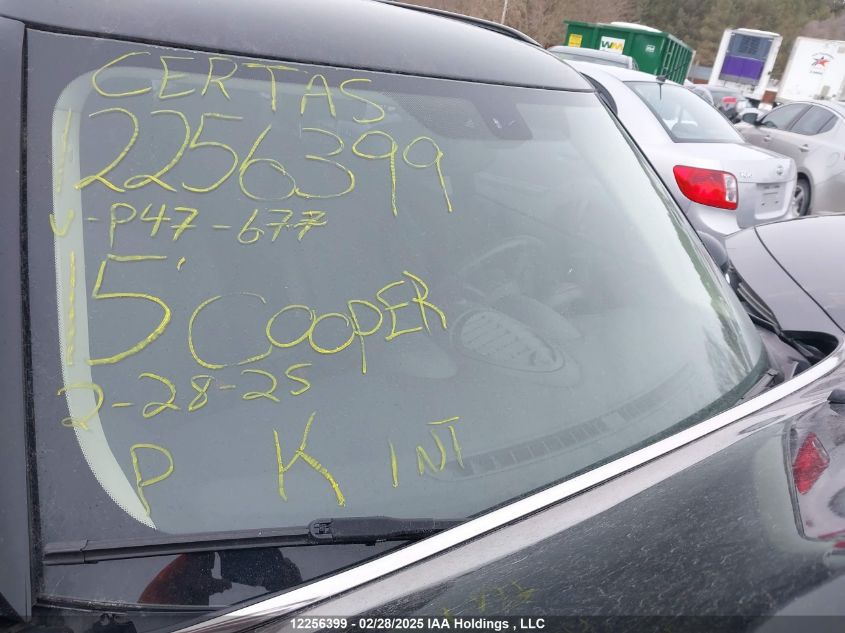 CERTAS
12256399
V-P47-677
15' COOPER
2-28-25
P K INT
WM
12256399 - 02/28/2025 IAA Holdings , LLC